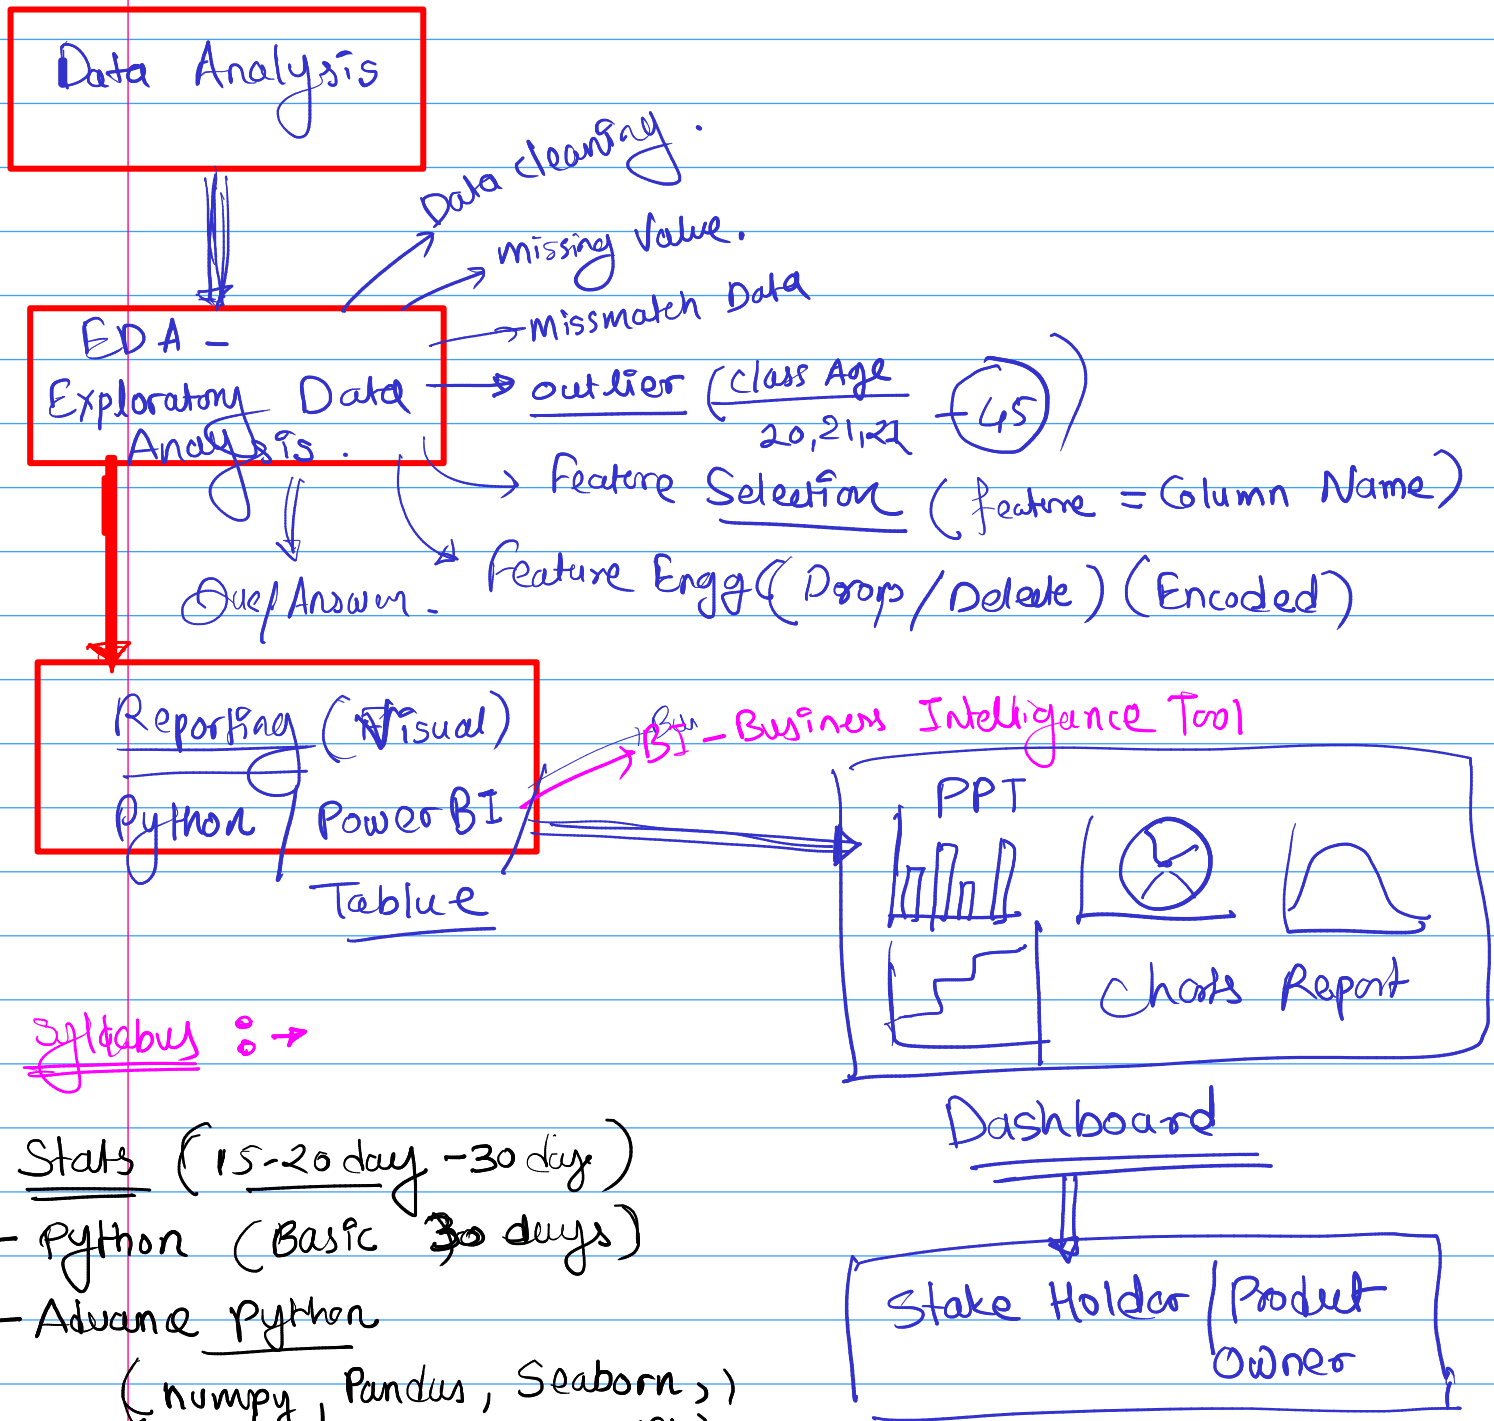 Data Analysis
Data cleaning.
missing value.
missmatch Data
EDA -
Exploratory Data
Analysis.
outlier (class Age
20,21,22 - 45)
Feature Selection (feature = Column Name)
Feature Engg ((Drop/Delete) (Encoded)
Que/Answer.
Reporting (Visual)
Python / PowerBI /
Tablue
BI - Business Intelligance Tool
PPT
Charts Report
Dashboard
Stake Holder / Product
Owner
Syllabus : →
Stats (15-20 day - 30 day)
- Python (Basic 30 days)
- Advance Python
(numpy, Pandas, Seaborn,,)